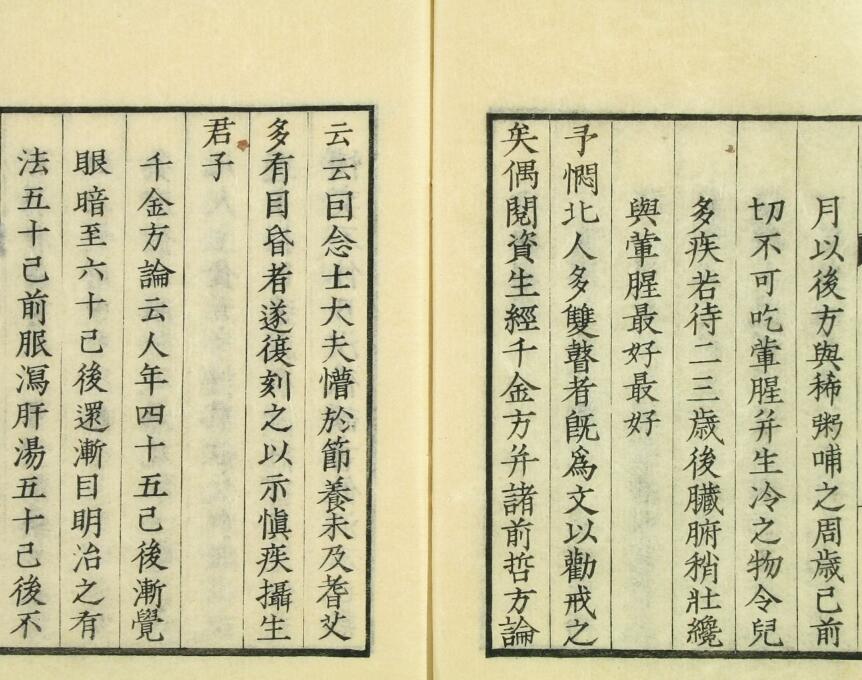 月以後方與稀粥哺之周歳已前
切不可吃葷腥并生冷之物令兒
多疾若待二三歳後臟腑稍壯纔
與葷腥最好最好
予憫北人多雙瞽者旣爲文以勸戒之
矣偶閱資生經千金方并諸前哲方論
云云回念士大夫懵於節養未及耆艾
多有目昏者遂復刻之以示愼疾攝生
君子
千金方論云人年四十五已後漸覺
眼暗至六十已後還漸目明治之有
法五十已前服瀉肝湯五十已後不